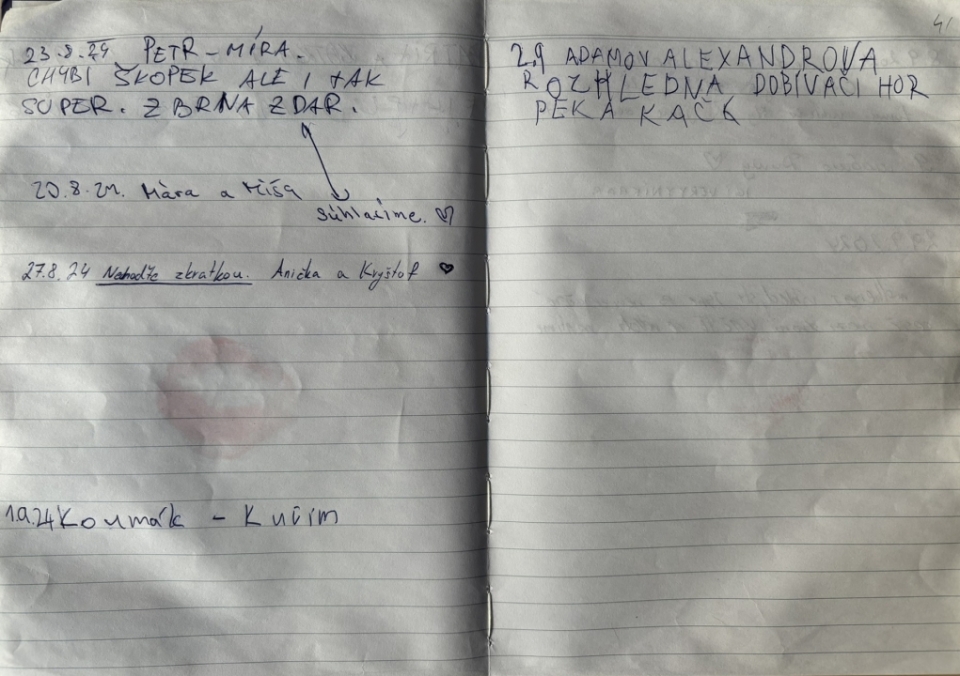 23.8.24 PETR - MÍRA.
CHYBI ŠKOPEK ALE I TAK
SUPER. Z BRNA ZDAR.
20.8.24. Mára a Míša
súhlasíme. ♡
27.8.24 zkratkou. Anička a Kryštof ♥
1.9.24 Koumák - Kuřim
41
2.9 ADAMOV ALEXANDROVA
ROZHLEDNA DOBÍVAČI HOR
PEK A KAČK